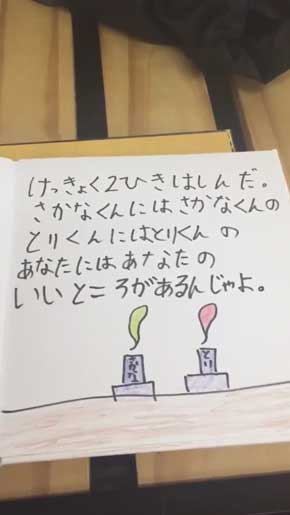 けっきょく2ひきはしんだ。
さかなくんにはさかなくんの
とりくんにはとりくんの
あなたにはあなたの
いいところがあるんじゃよ。
さかな
とり